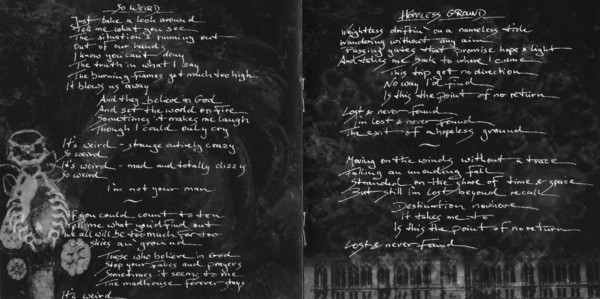 SO WEIRD
Just take a look around
Tell me what you see
The situation's running out
Out of our hands
I know you can't deny
The truth in what I say
The burning flames get much too high
It blows us away
And they believe in God
And set the world on fire
Sometimes it makes me laugh
Though I could only cry
It's weird - strange entirely crazy
So weird
It's weird - mad and totally dizzy
So weird
I'm not your man
~
If you could count to ten
Tell me what you'd find out
We all will be too much far too
skies an' ground
Those who believe in God
Stop your fakes and prayers
Sometimes it seems to me
The madhouse forever stays
It's weird
HOPELESS GROUND
Weightless driftin' on a nameless tide
Wandering without any aim
Passing gates that promise hope & light
And takes me back to where I came
This trip got no direction
No way I'd find
Is this the point of no return
Lost & never found
I'm lost & never found
The exit of a hopeless ground
~
Moving on the winds without a trace
Falling an unending fall
Stranded on the shore of time & space
But still I'm lost beyond recall
Destination nowhere
It takes me to
Is this the point of no return
Lost & never found